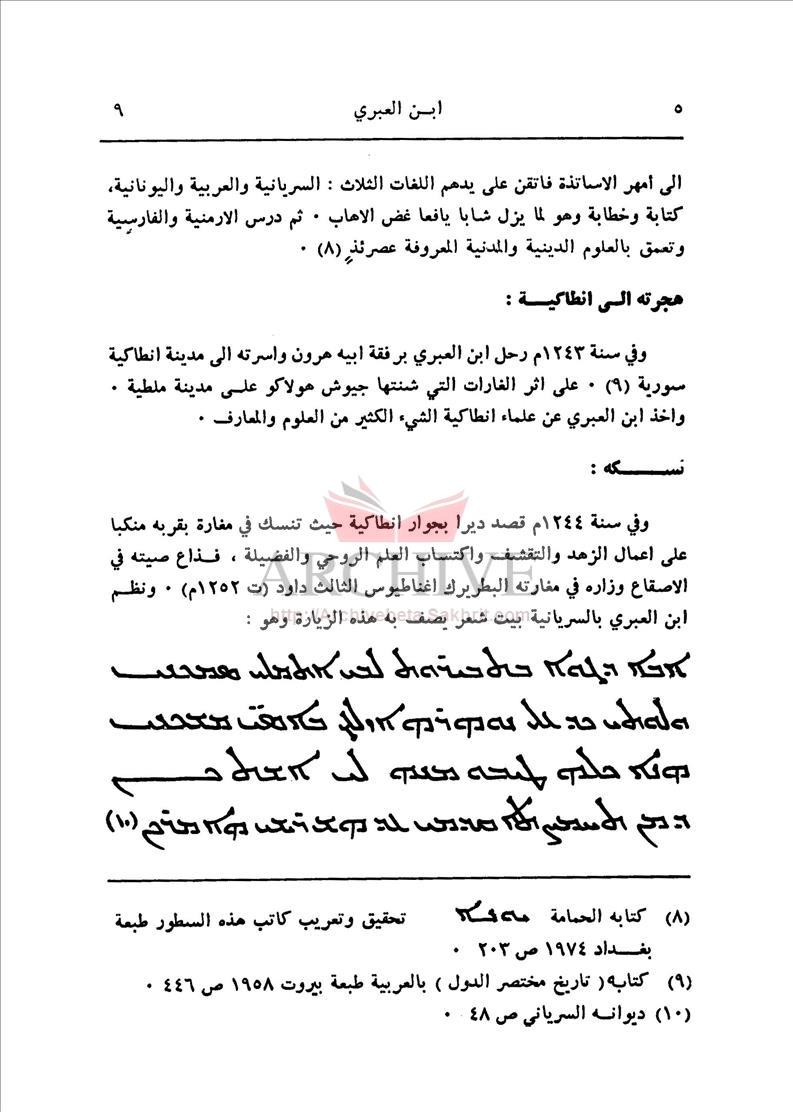 ٥ ابـن العبري ٩
الى أمهر الاساتذة فاتقن على يدهم اللغات الثلاث : السريانية والعربية واليونانية،
كتابة وخطابة وهو لما يزل شابا يافعا غض الاهاب ٠ ثم درس الارمنية والفارسية
وتعمق بالعلوم الدينية والمدنية المعروفة عصرئذٍ (٨) ٠
هجرته الـى انطاكيـــة :
وفي سنة ١٢٤٣م رحل ابن العبري برفقة ابيه هرون واسرته الى مدينة انطاكية
سورية (٩) ٠ على اثر الغارات التي شنتها جيوش هولاكو علـى مدينة ملطية ٠
واخذ ابن العبري عن علماء انطاكية الشيء الكثير من العلوم والمعارف ٠
نســـــكه :
وفي سنة ١٢٤٤م قصد ديرا بجوار انطاكية حيث تنسك في مغارة بقربه منكبا
على اعمال الزهد والتقشف واكتساب العلم الروحي والفضيلة ، فـذاع صيته في
ARCHIVE
الاصقاع وزاره في مغارته البطريرك اغناطيوس الثالث داود (ت ١٢٥٢م) ٠ ونظـم
http://Archivebeta.Sakhrit.com
ابن العبري بالسريانية بيت شعر يصف به هذه الزيارة وهو :
(١٠)
(٨) كتابه الحمامة تحقيق وتعريب كاتب هذه السطور طبعة
بغـداد ١٩٧٤ ص ٢٠٣ ٠
(٩) كتابه( تاريخ مختصر الدول ) بالعربية طبعة بيروت ١٩٥٨ ص ٤٤٦ ٠
(١٠) ديوانـه السرياني ص ٤٨ ٠